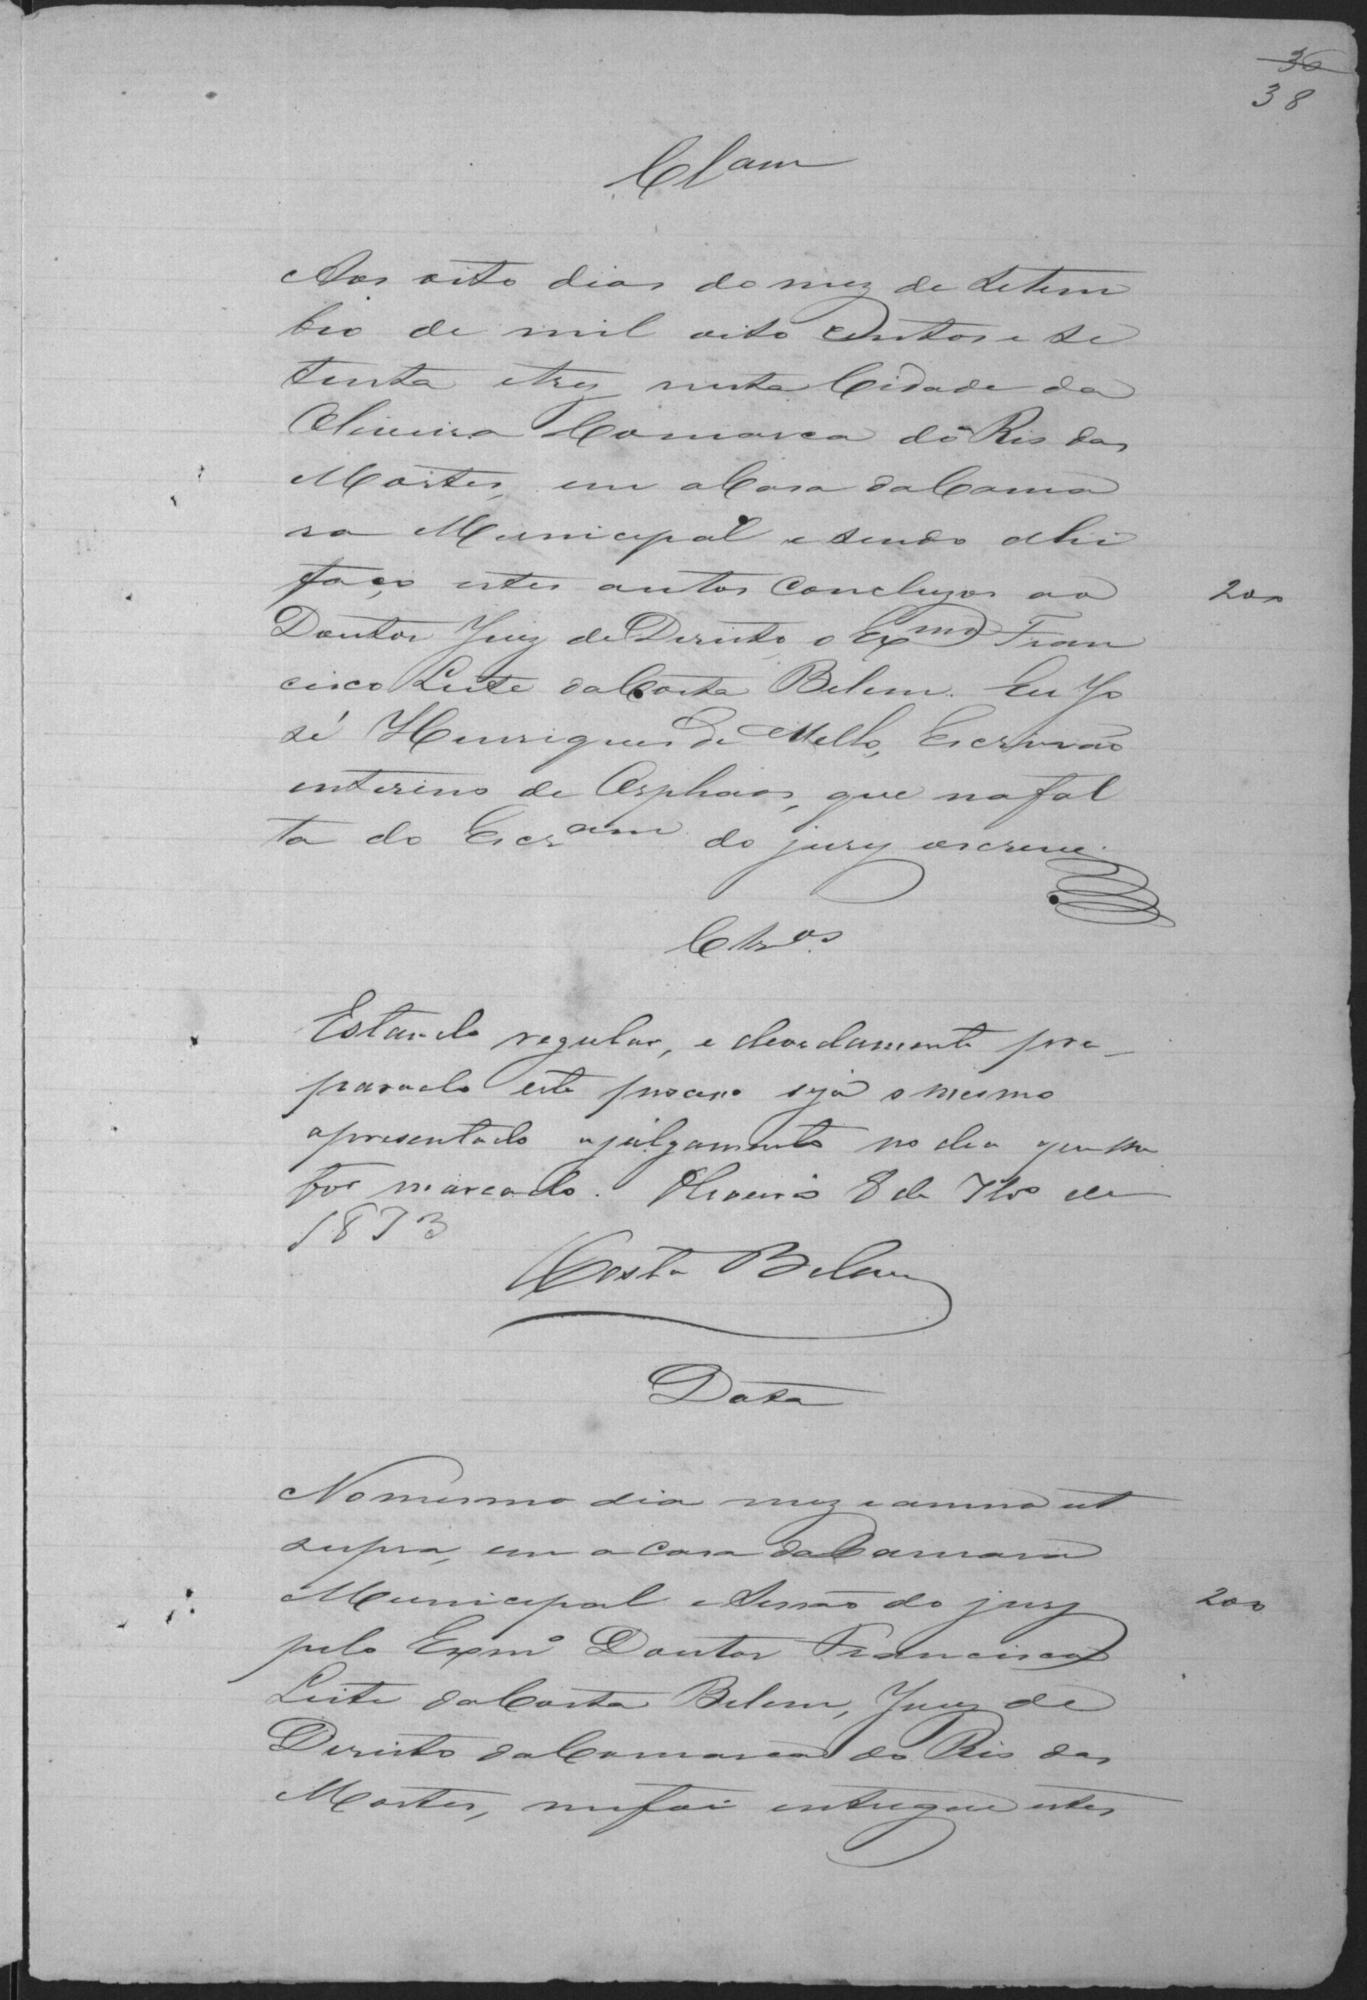 36
38
Clsam
Aos oito dias do mez de Setem
bro de mil oito centos e se
tenta e trez nesta Cidade da
Oliveira Comarca do Rio das
Mortes, em a Casa da Cama
ra Municipal e sendo ahi
faço estes autos Concluzos ao
200
Doutor Juiz de Direito, o Exmo Fran
cisco Leite da Costa Belem. Eu Jo
sé Henriques de Mello, Escrivão
interino de Orphaos, que na fal
ta do Escram do jury escrevi.
Clsos
Estando regular, e devidamente pre-
parado este processo seja o mesmo
apresentado a julgamento no dia que
for marcado. Oliveira 8 de 7bro de
1873
Costa Belem
Data
No mesmo dia mez e anno ut
supra, em a casa da Camara
Municipal e Sessão do jury
200
pelo Exmo Doutor Francisco
Leite da Costa Belem, Juiz de
Direito da Comarca do Rio das
Mortes, me foi entregue estes